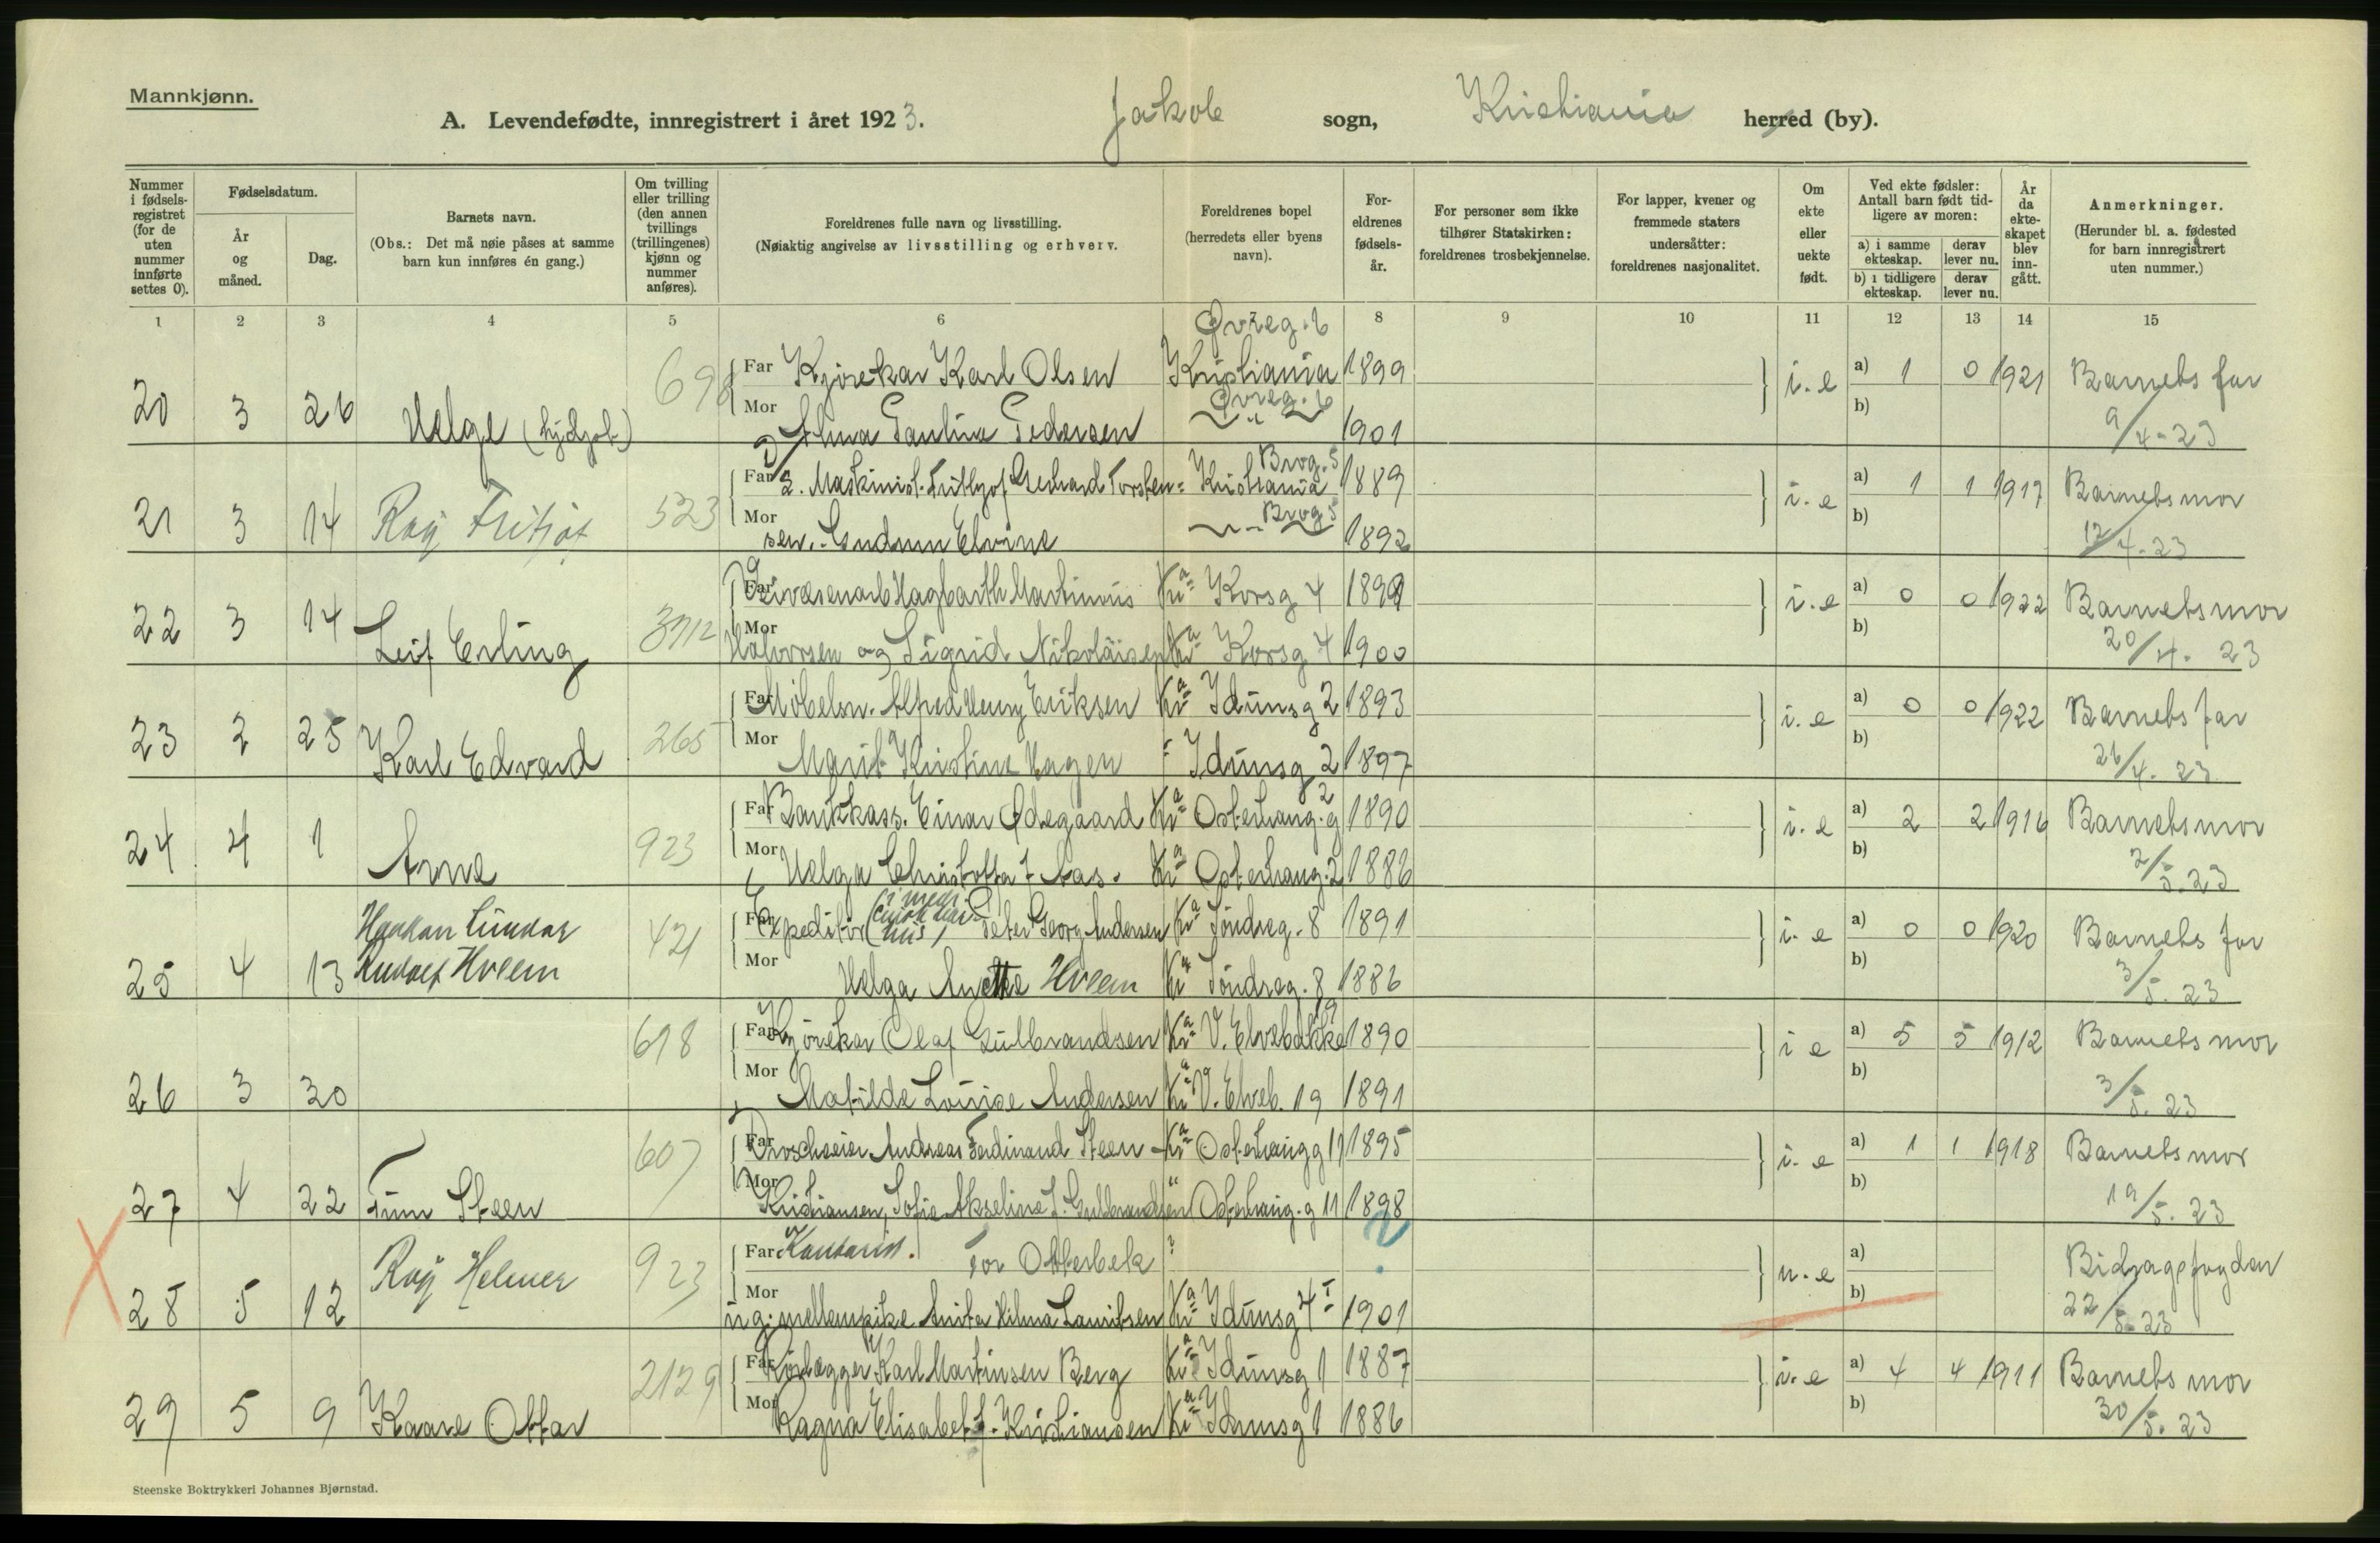 Mannkjønn.
A. Levendefødte, innregistrert i året 1923. Jakob sogn, Kristiania herred (by).
Nummer i fødselsregistret (for de uten nummer innførte settes 0).
Fødselsdatum.
År og måned.
Dag.
Barnets navn.
(Obs.: Det må nøie påses at samme barn kun innføres én gang.)
Om tvilling eller trilling (den annen tvillings (trillingenes) kjønn og nummer anføres).
Foreldrenes fulle navn og livsstilling.
(Nøiaktig angivelse av livsstilling og erhverv.
Foreldrenes bopel (herredets eller byens navn).
Foreldrenes fødselsår.
For personer som ikke tilhører Statskirken: foreldrenes trosbekjennelse.
For lapper, kvener og fremmede staters undersåtter: foreldrenes nasjonalitet.
Om ekte eller uekte født.
Ved ekte fødsler: Antall barn født tidligere av moren:
a) i samme ekteskap. derav lever nu.
b) i tidligere ekteskap. derav lever nu.
År da ekteskapet blev inngått.
Anmerkninger.
(Herunder bl. a. fødested for barn innregistrert uten nummer.)
1 2 3 4 5 6 8 9 10 11 12 13 14 15
Øvreg. 6
20 3 26 Helge 698 Far Kjørekar Karl Olsen Kristiania 1899 i. e a) 1 0 1921 Barnets far
Mor Alma Paulina Pedersen Øvreg. 6 1901 b) 9/4-23
21 3 14 Roy Fritjof 523 Far 2. Maskinist. Fritjof Gerhard Torsten= Kristiania Brog. 5 1889 i. e a) 1 1 1917 Barnets mor
Mor sen. Gudrun Elvine Brog 5 1892 b) 12/4-23
22 3 14 Leif Erling Far Hagbarth Martinius Kr.a Korsg 4 1899 i. e a) 0 0 1922 Barnets mor
Mor Halvorsen og Sigrid Nikolaisen Kr.a Korsg 4 1900 b) 20/4. 23
23 2 25 Karl Edvard 265 Far Møbelsn. Alfred Henry Eriksen Kr.a Idunsg 2 1893 i. e a) 0 0 1922 Barnets far
Mor Marit Kristine Hagen Idunsg 2 1897 b) 26/4. 23
24 4 1 Arne 923 Far Bankkass. Einar Ødegaard Kr.a Osterhausg. 2 1890 i. e a) 2 2 1916 Barnets mor
Mor Helga f. Aas. Kr.a Osterhausg. 2 1886 b) 2/5. 23
25 4 13 Haakon Gunnar Hveem 421 Far Expeditør Peter Georg Andersen Kr.a Søndreg. 8 1891 i. e a) 0 0 1920 Barnets far
Mor Helga Anette Hveem Kr.a Søndreg. 8 1886 b) 3/5. 23
26 3 30 698 Far Kjørekar Olaf Gulbrandsen Kr.a V. Elvebakke 19 1890 i e a) 5 5 1912 Barnets mor
Mor Matilde Louise Andersen Kr.a V. Elveb. 19 1891 b) 3/5. 23
27 4 22 Finn Steen 607 Far Droscheeier Andreas Ferdinand Steen Kr.a Osterhausg 11 1895 i. e a) 1 1 1918 Barnets mor
Mor Kristiansen, Sofie Akseline f. Gulbrandsen Osterhaug. g 11 1898 b) 19/5. 23
28 5 12 Roy Helmer 923 Far Kontorist. Tor Otterbek ? ? u. e a) Bidragsfogden
Mor ug. mellempike Anita Hilma Lauritsen Kr.a Idunsg 4 I 1901 b) 22/5-23
29 5 9 Kaare Ottar 2129 Far Rørlægger Karl Martinsen Berg Kr.a Idunsg 1 1887 i. e a) 4 4 1911 Barnets mor
Mor Ragna Elisabet f. Kristiansen Kr.a Idunsg 1 1886 b) 30/5. 23
Steenske Boktrykkeri Johannes Bjørnstad.